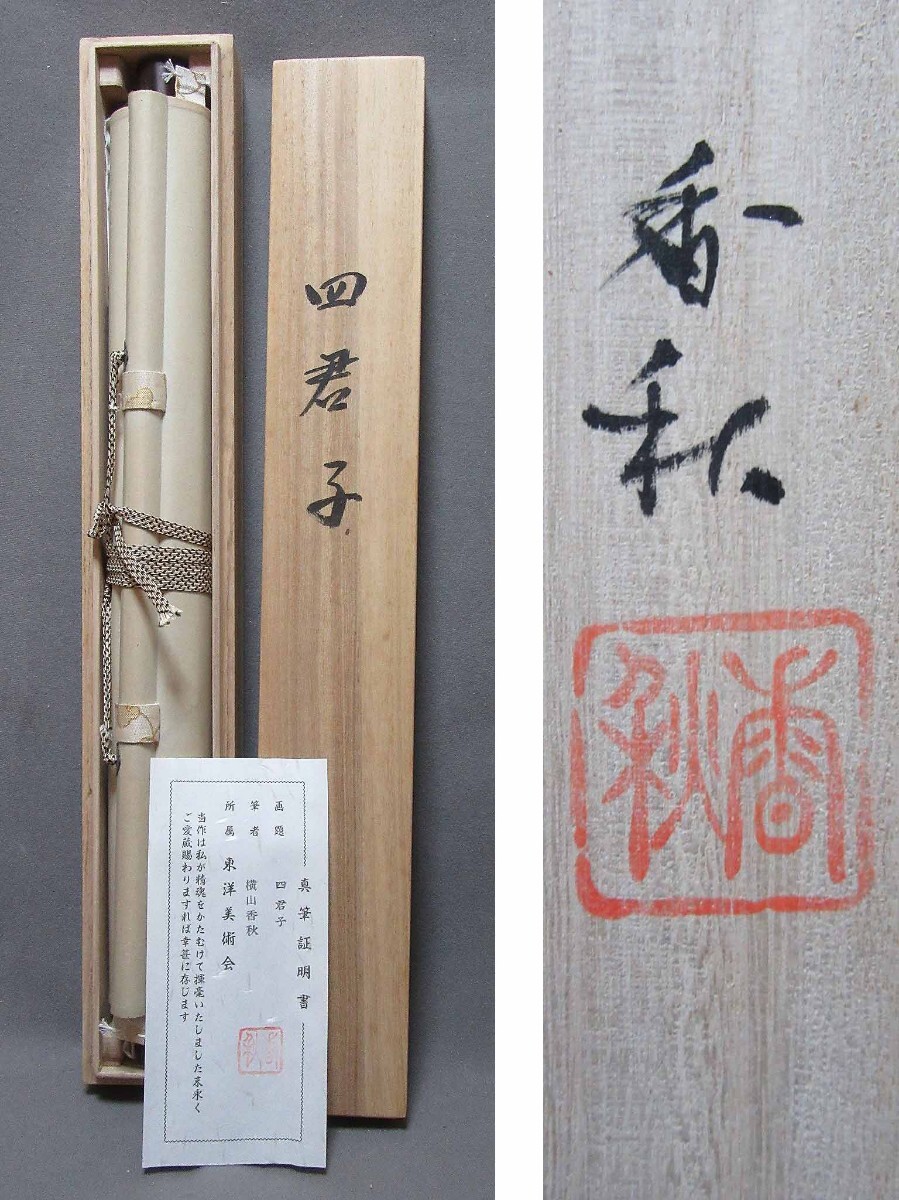 四君子
真筆証明書
画題 四君子
筆者 横山香秋
所属 東洋美術会
当作は私が精魂をかたむけて揮毫いたしました末永く
ご愛蔵賜わりますれば幸甚に存じます
香秋
香秋